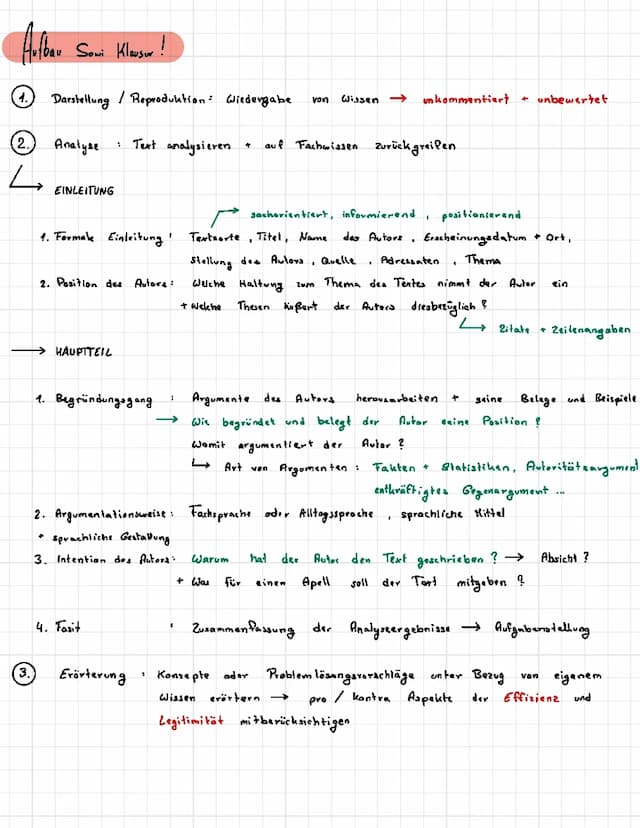 Aufbau Sowi Klausur!
1. Darstellung / Reproduktion: Wiedergabe von Wissen → unkommentiert + unbewertet
2. Analyse : Text analysieren + auf Fachwissen zurückgreifen
↳ EINLEITUNG
↱ sachorientiert, informierend, positionierend
1. Formale Einleitung : Textsorte, Titel, Name des Autors, Erscheinungsdatum + Ort,
Stellung des Autors, Quelle, Adressaten, Thema
2. Position des Autors: Welche Haltung zum Thema des Textes nimmt der Autor ein
+ welche Thesen äußert der Autor diesbezüglich?
↳ Zitate + Zeilenangaben
→ HAUPTTEIL
1. Begründungsgang : Argumente des Autors herausarbeiten + seine Belege und Beispiele
→ Wie begründet und belegt der Autor seine Position?
Womit argumentiert der Autor?
↳ Art von Argumenten: Fakten + Statistiken, Autoritätsargument
entkräftigtes Gegenargument ...
2. Argumentationsweise: Fachsprache oder Alltagssprache, sprachliche Mittel
+ sprachliche Gestaltung
3. Intention des Autors: Warum hat der Autor den Text geschrieben? → Absicht?
+ Was für einen Apell soll der Text mitgeben?
4. Fazit : Zusammenfassung der Analyseergebnisse → Aufgabenstellung
3. Erörterung : Konzepte oder Problemlösungsvorschläge unter Bezug von eigenem
Wissen erörtern → pro / kontra Aspekte der Effizienz und
Legitimität mitberücksichtigen